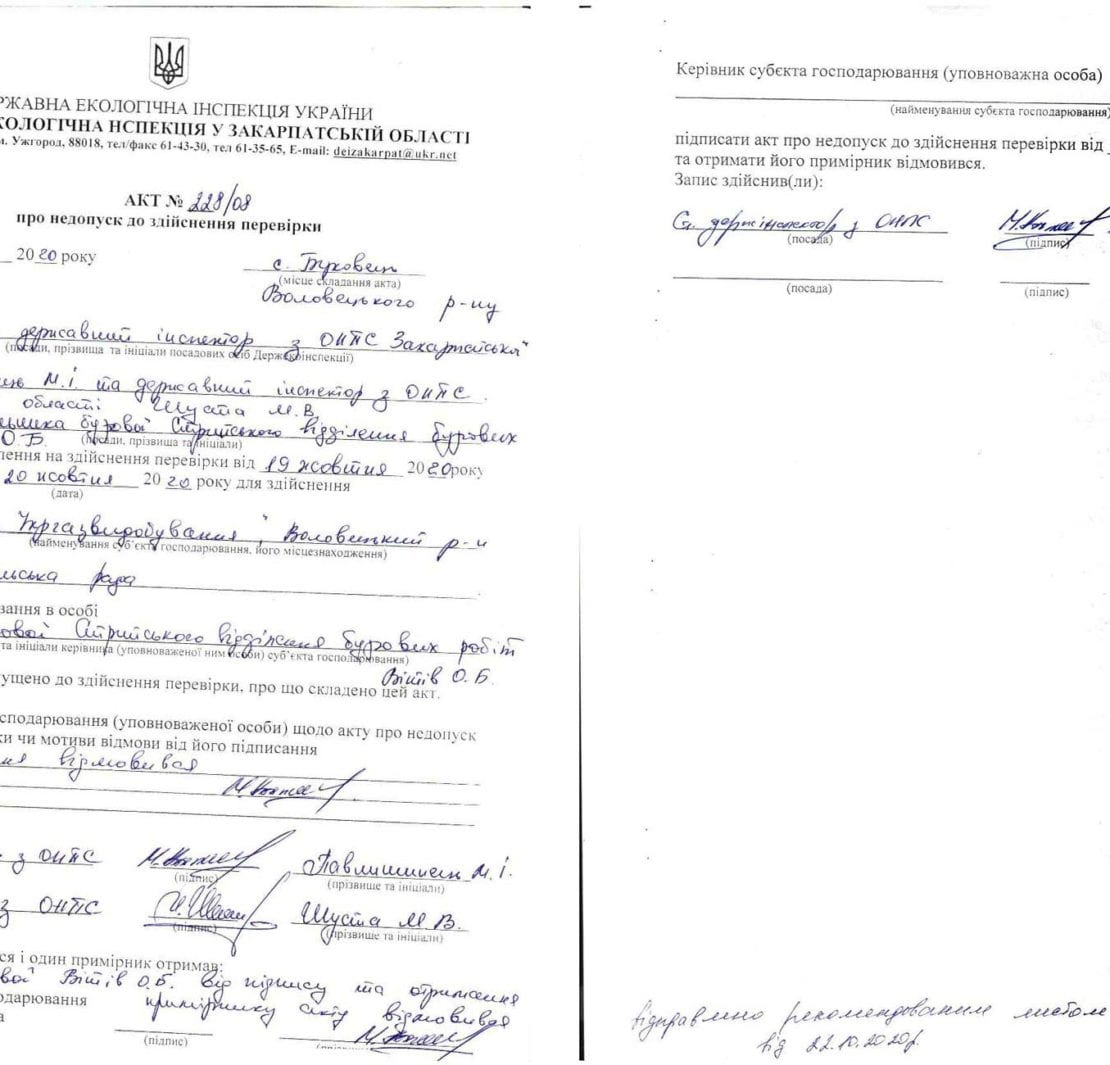 РЖАВНА ЕКОЛОГІЧНА ІНСПЕКЦІЯ УКРАЇНИ
КОЛОГІЧНА НСПЕКЦІЯ У ЗАКАРПАТСЬКІЙ ОБЛАСТІ
м. Ужгород, 88018, тел/факс 61-43-30, тел 61-35-65, E-mail: deizakarpat@ukr.net
АКТ № 228/08
про недопуск до здійснення перевірки
2020 року
с.
(місце складання акта)
Воловецького р-ну
державний інспектор з ОНПС Закарпатської
(посади, прізвища та ініціали посадових осіб Держекоінспекції)
М.І. та державний інспектор з ОНПС
області Шуста М.В.
бурової Стрийського відділення бурових
О.Б. (посади, прізвища та ініціали)
лення на здійснення перевірки від 19 жовтня 2020 року
20 жовтня 2020 року для здійснення
(дата)
Укргазвидобування", Воловецький р-н
(найменування суб'єкта господарювання, його місцезнаходження)
льська рада
вання в особі
ової Стрийського відділення бурових робіт
та ініціали керівника (уповноваженої ним особи) суб'єкта господарювання)
Вітів О.Б.
ущено до здійснення перевірки, про що складено цей акт.
сподарювання (уповноваженої особи) щодо акту про недопуск
ки чи мотиви відмови від його підписання
ня відмовився
з ОНПС Павлишинець М.І.
(підпис) (прізвище та ініціали)
з ОНПС Шуста М.В.
(підпис) (прізвище та ініціали)
ся і один примірник отримав:
вої Вітів О.Б. від підпису та отримання
одарювання примірнику акту відмовився
а
(підпис)
Керівник субєкта господарювання (уповноважна особа)
(найменування субєкта господарювання)
підписати акт про недопуск до здійснення перевірки від
та отримати його примірник відмовився.
Запис здійснив(ли):
Ст. держінспектор з ОНПС
(посада) (підпис)
(посада) (підпис)
відправлено рекомендованим листом
від 22.10.2020р.